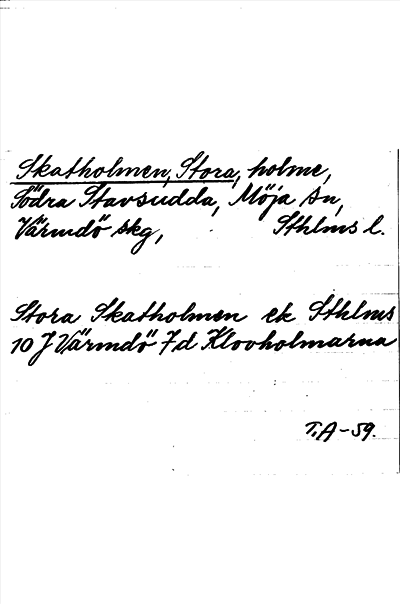 Skatholmen, Stora, holme,
Södra Stavsudda, Möja sn,
Värmdö skg, Sthlms l.
Stora Skatholmen ek Sthlms
10 J Värmdö 7d Klovholmarna
T.A-59.